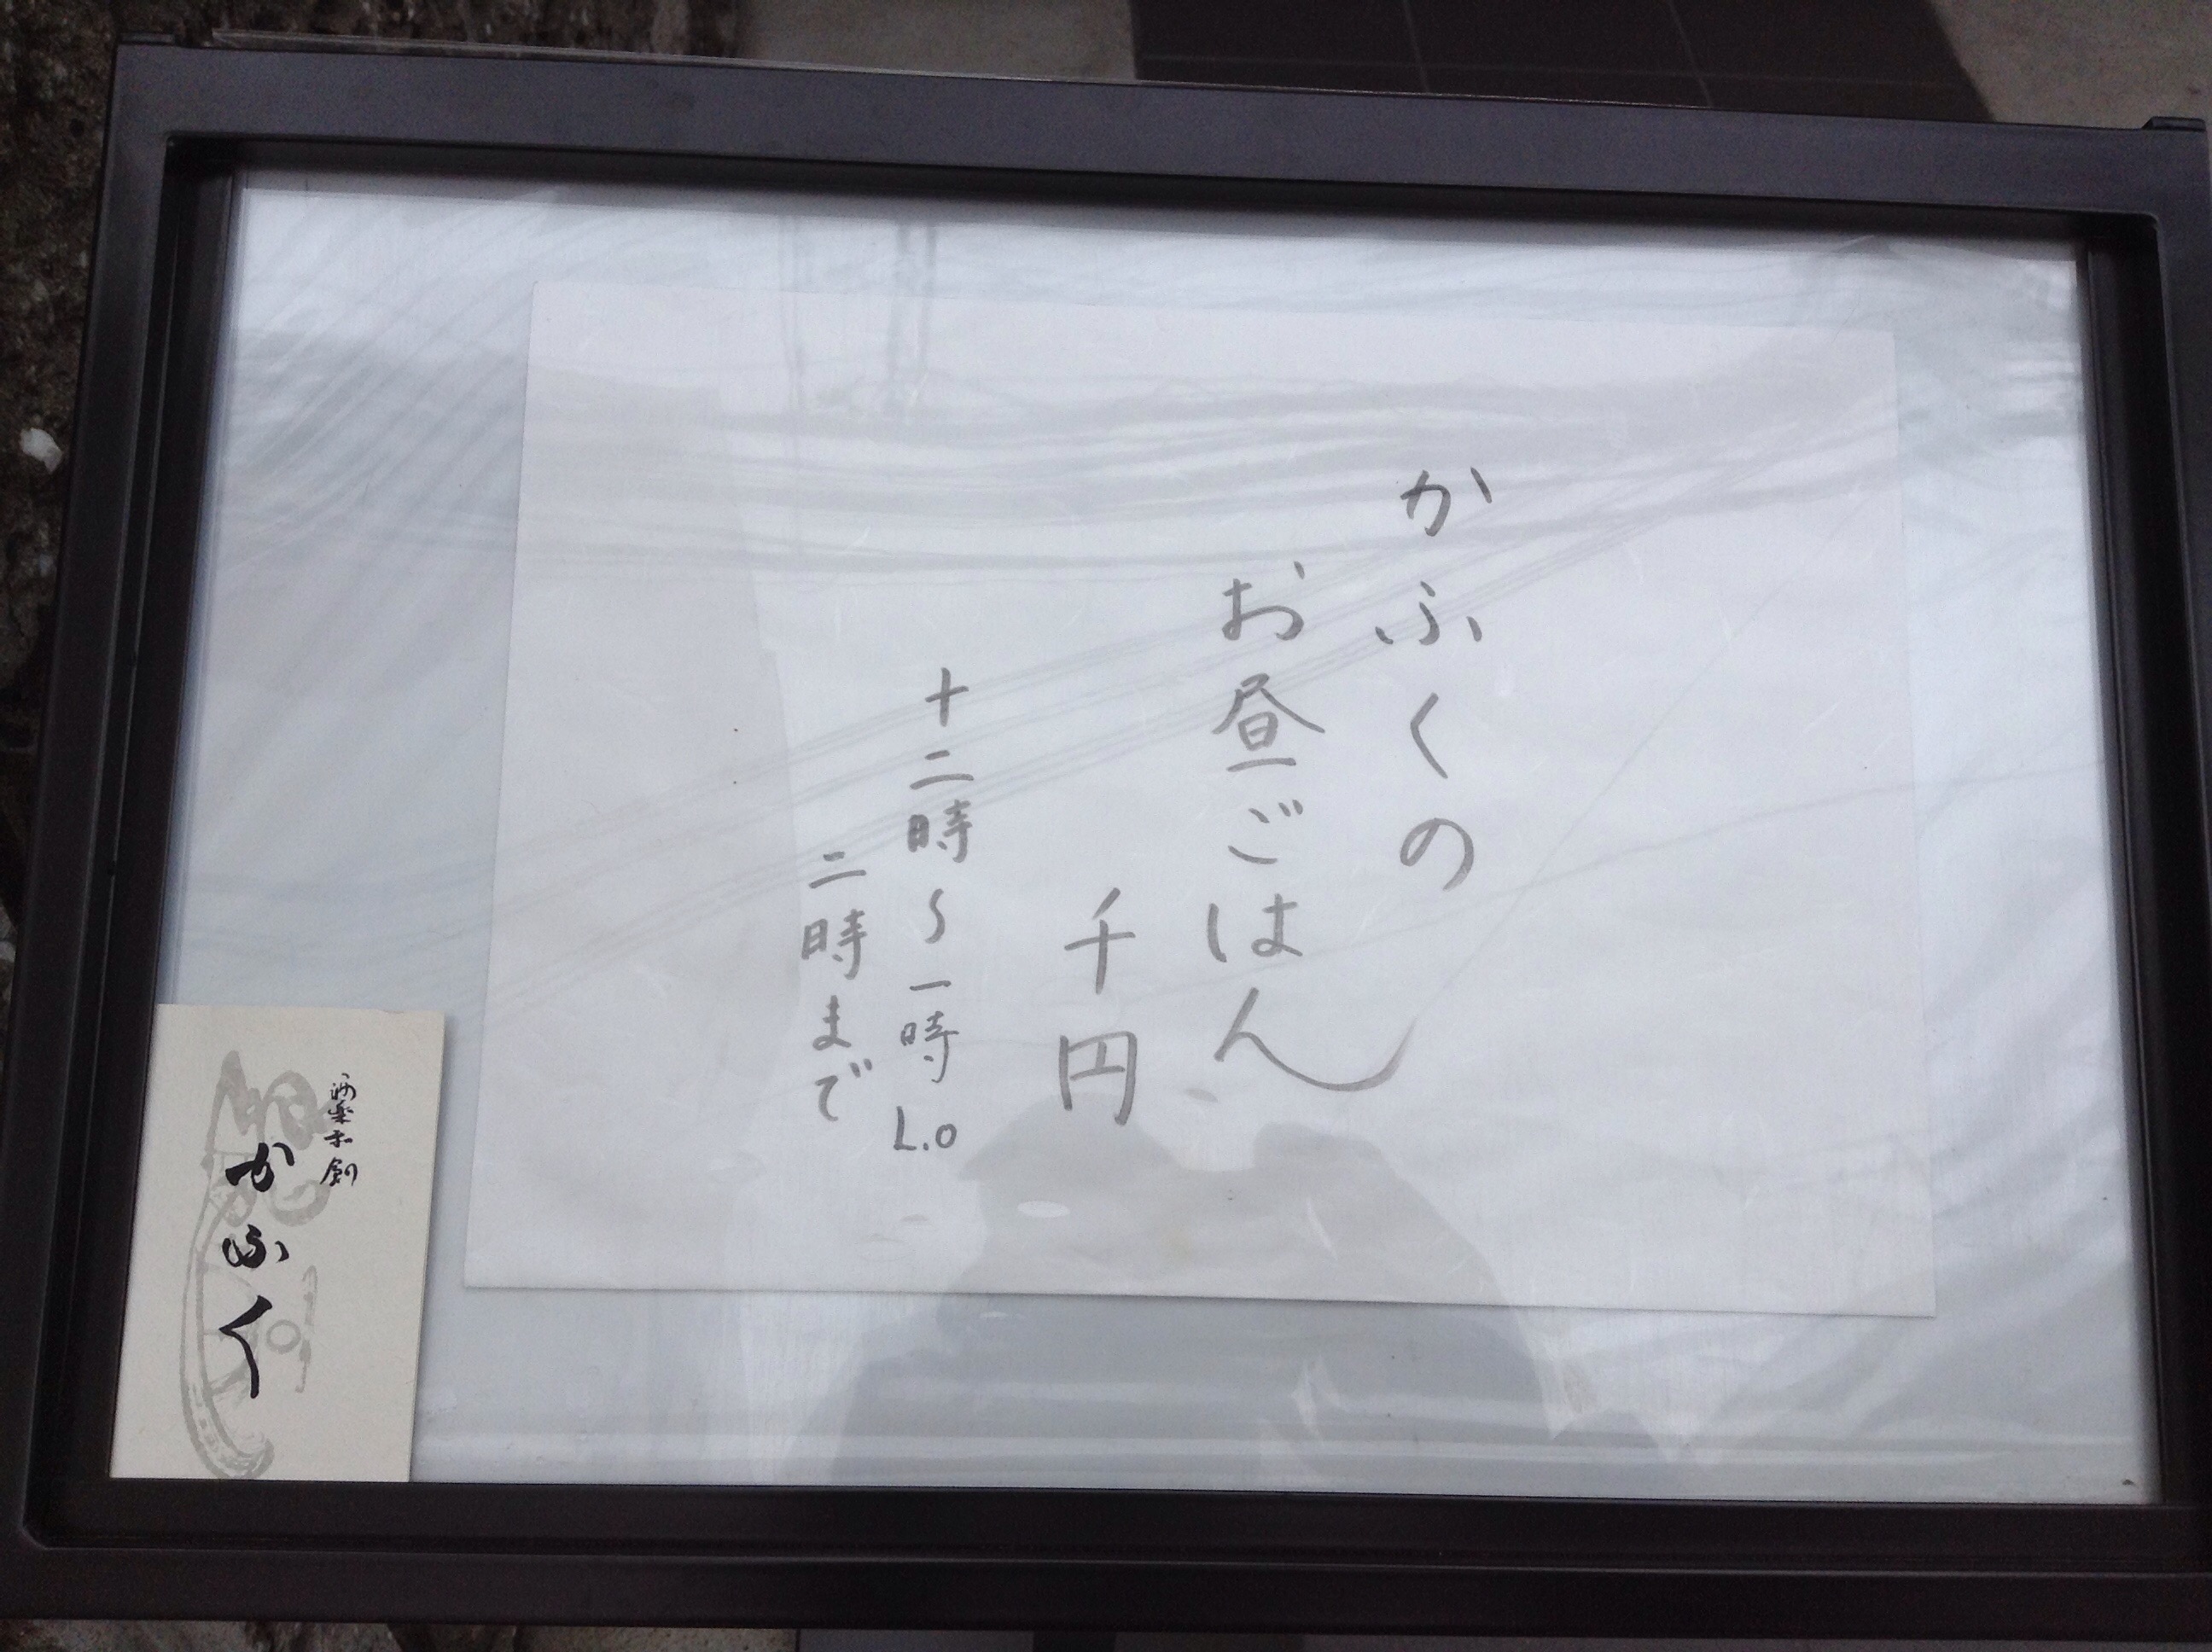 かふくの
お昼ごはん
千円
十二時〜一時L.O
二時まで
酒楽和創
かふく